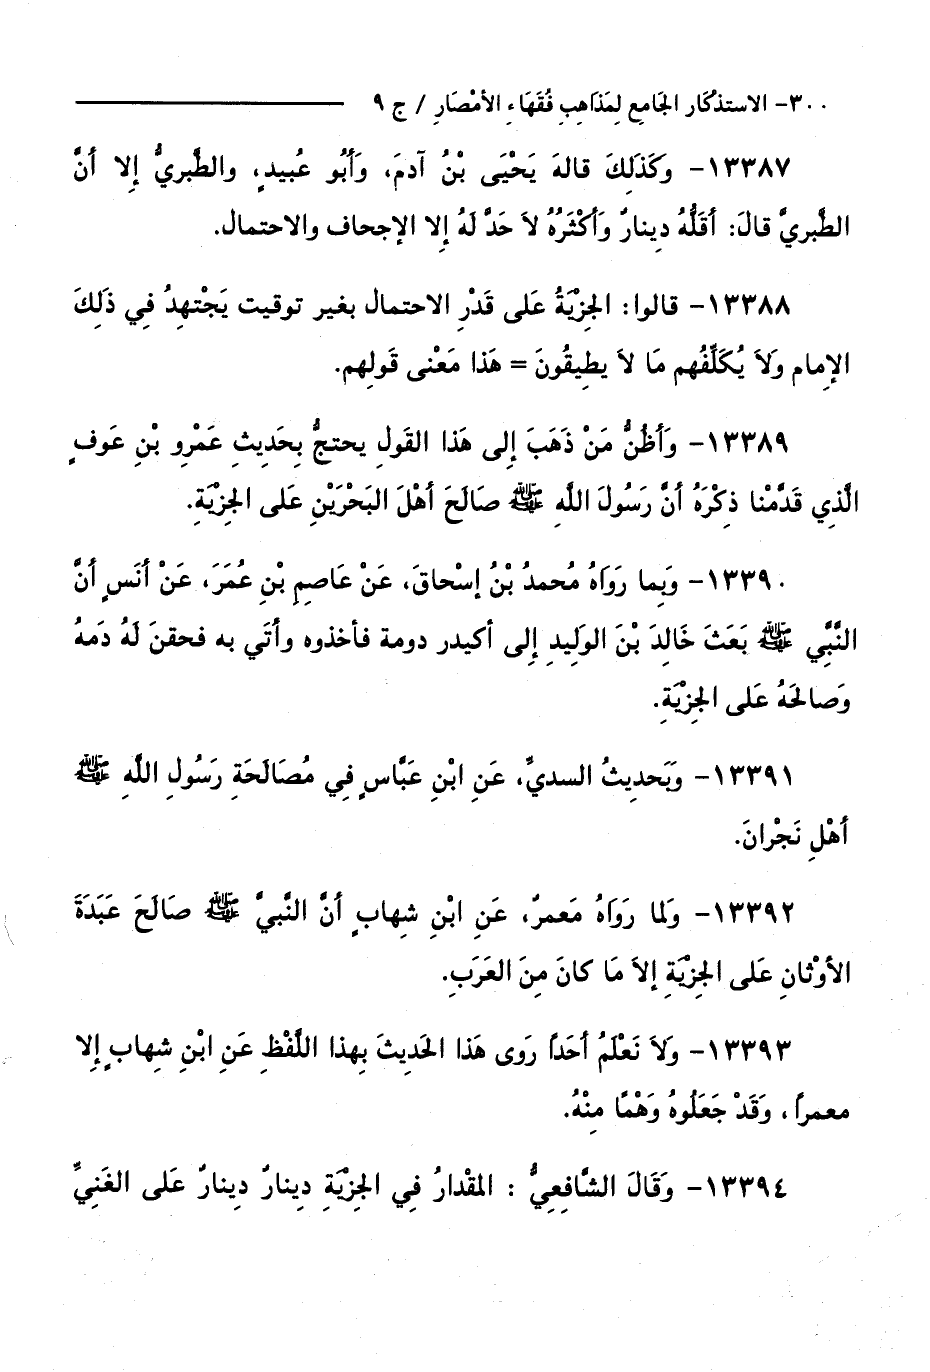 ٣٠٠- الاستذكار الجَامِع لِمَذَاهِبِ فُقَهَاءِ الأمْصَارِ / ج ٩
١٣٣٨٧- وكَذَلِكَ قالهَ يَحْيَى بْنُ آدمَ، وَأَبُو عُبيدٍ، والطَّبريُّ إِلا أنَّ
الطَّبريَّ قالَ: أقَلُّهُ دِينارٌ وَأَكْثَرُهُ لاَ حَدَّ لَهُ إلا الإجحاف والاحتمال.
١٣٣٨٨- قالوا: الجِزْيَةُ عَلى قَدْرِ الاحتمال بغير توقيت يَجْتهِدُ فِي ذَلِكَ
الإمام وَلاَ يُكَلِّفُهم مَا لاَ يطيقُونَ = هَذا مَعْنى قَولِهم.
١٣٣٨٩- وَأظُنُّ مَنْ ذَهَبَ إِلى هَذا القَولِ يحتجُّ بِحَديثِ عَمْرِو بْنِ عَوفٍ
الَّذِي قَدَّمْنا ذِكْرَهُ أنَّ رَسُولَ اللَّهِ ﷺ صَالَحَ أهْلَ البَحْرَيْنِ عَلى الجِزْيَةِ.
١٣٣٩٠- وَبِما رَوَاهُ مُحمدُ بْنُ إسْحاقَ، عَنْ عَاصِمِ بْنِ عُمَرَ، عَنْ أنَسٍ أنَّ
النَّبِّي ﷺ بَعَثَ خَالِدَ بْنَ الوَلِيدِ إلى أكيدر دومة فأخذوه وأتَي به فحقنَ لَهُ دَمهُ
وَصالَحَهُ عَلى الجِزْيَةِ.
١٣٣٩١- وَبَحديثُ السديِّ، عَنِ ابْنِ عَبَّاسٍ فِي مُصَالَحَةِ رَسُولِ اللَّهِ ﷺ
أهْلِ نَجْرانَ.
١٣٣٩٢- وَلما رَوَاهُ مَعمرٌ، عَنِ ابْنِ شِهابٍ أنَّ النَّبيَّ ﷺ صَالَحَ عَبَدَةَ
الأوْثانِ عَلى الجِزْيَةِ إلاَ مَا كانَ مِنَ العَرَبِ.
١٣٣٩٣- وَلاَ نَعْلَمُ أحَداً رَوى هَذا الحَديثَ بِهذا اللَّفْظِ عَنِ ابْنِ شِهابٍ إِلا
معمراً ، وَقَدْ جَعَلُوهُ وَهْمًا مِنْهُ.
١٣٣٩٤- وَقَالَ الشَّافِعِيُّ : المقْدارُ فِي الجِزْيَةِ دِينارٌ دينارٌ عَلى الغَنيِّ